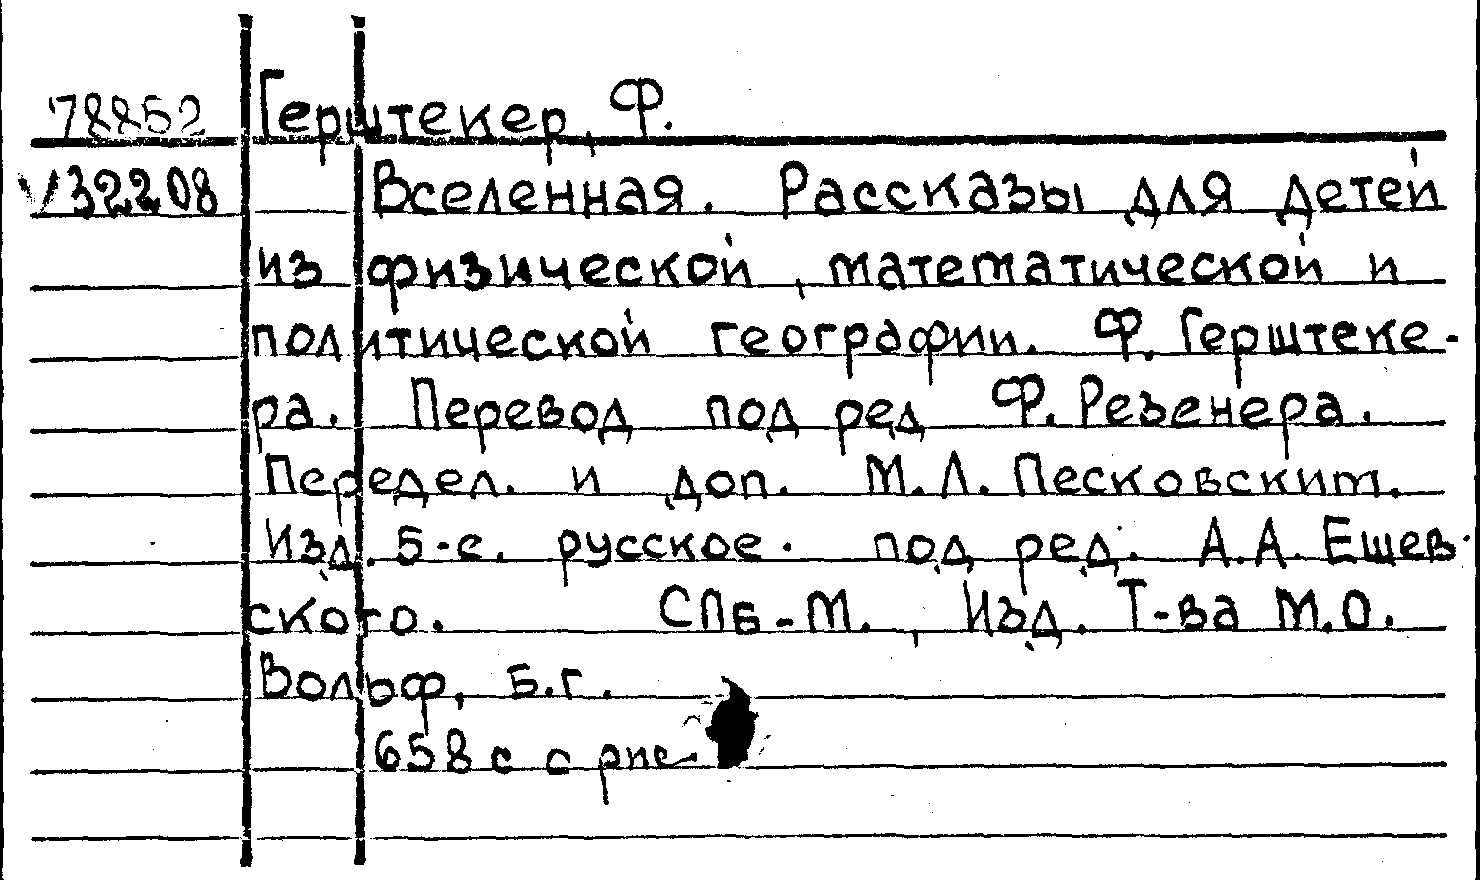 78852 Герштекер, Ф.
V32208 Вселенная. Рассказы для детей
из физической, математической и
политической географии. Ф. Герштеке-
ра. Перевод под ред Ф. Резенера.
Передел. и доп. М.Л. Песковским.
Изд. 5-е. русское. под ред. А.А. Ешев-
ского. СПБ-М., Изд. Т-ва М.О.
Вольф, б.г.
658 с с рис.